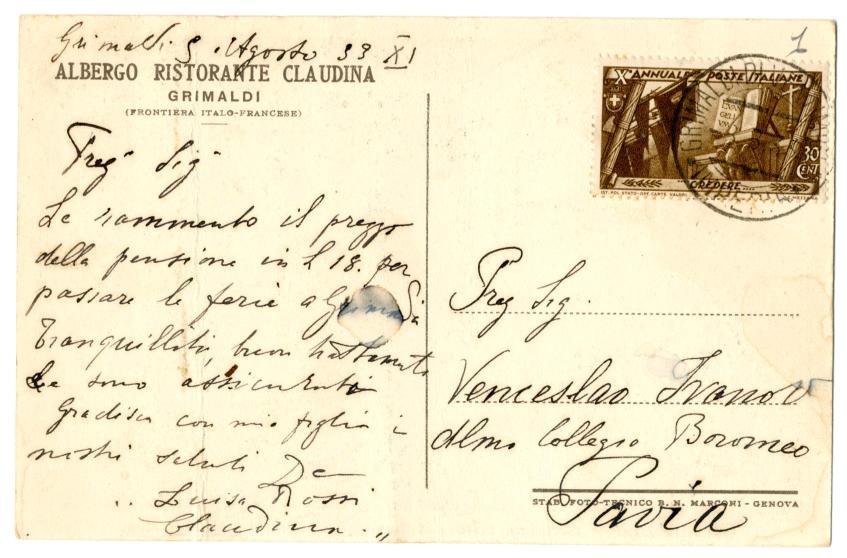 Grimaldi 5. Agosto 33 XI
ALBERGO RISTORANTE CLAUDINA
GRIMALDI
(FRONTIERA ITALO-FRANCESE)
Preg Sig
Le rammento il prezzo
della pensione in L 18. per
passare le ferie a
Tranquillità, buon trattamento
Le sono assicurati
Gradisca con mia figlia i
nostri saluti
Luisa Rossi
"Claudina"
X° ANNUALE POSTE ITALIANE
30
CENT
CREDERE
GRIMALDI
1
Preg Sig.
Venceslao Ivanov
Almo Collegio Boromeo
Pavia
STAB. FOTO-TECNICO B. N. MARCONI - GENOVA